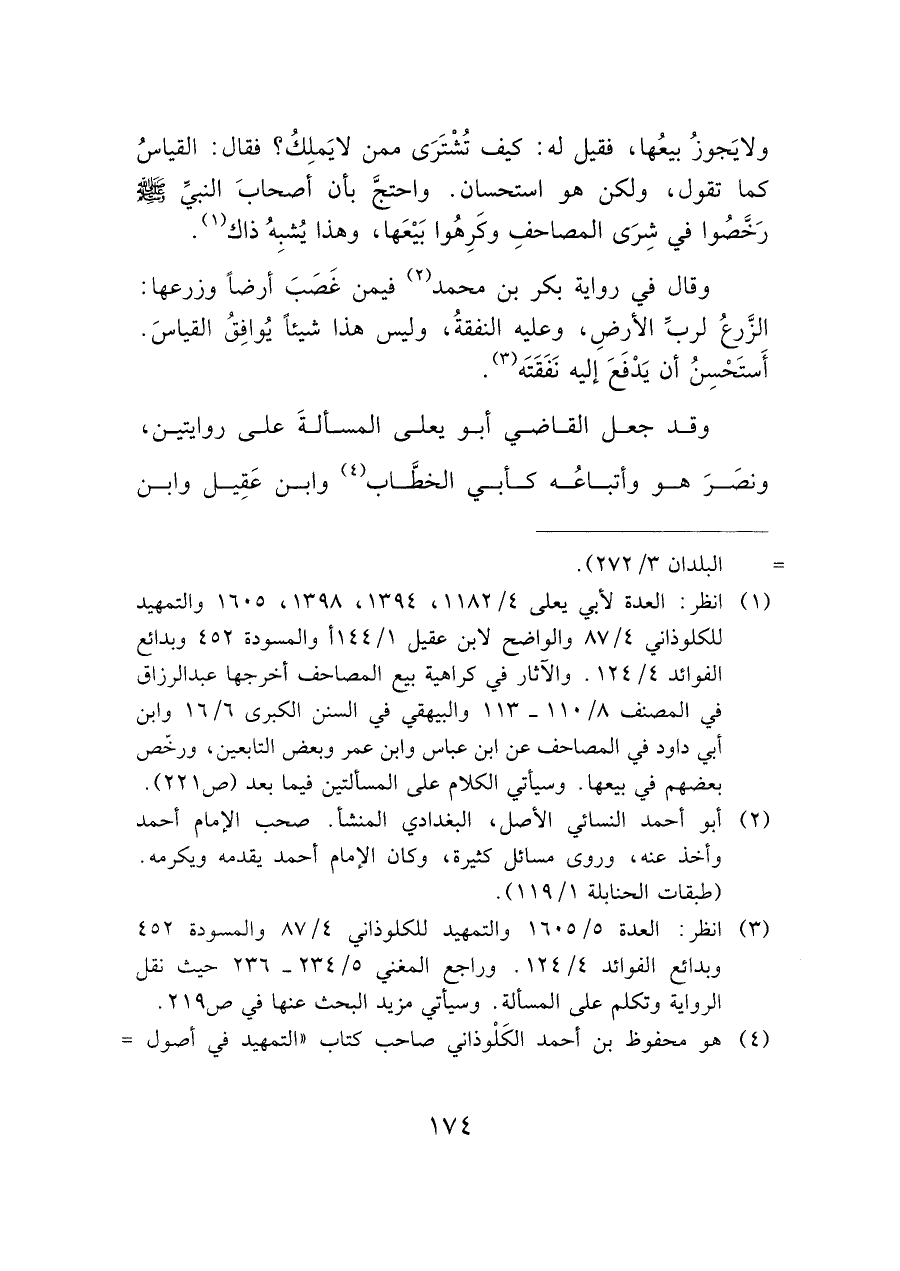 ولايَجوزُ بيعُها، فقيل له: كيف تُشْتَرَى ممن لايَملِكُ؟ فقال: القياسُ
كما تقول، ولكن هو استحسان. واحتجَّ بأن أصحابَ النبيِّ ﷺ
رَخَّصُوا في شِرَى المصاحفِ وكَرِهُوا بَيْعَها، وهذا يُشبِهُ ذاك(١).
وقال في رواية بكر بن محمد(٢) فيمن غَصَبَ أرضاً وزرعها:
الزَّرعُ لربِّ الأرضِ، وعليه النفقةُ، وليس هذا شيئاً يُوافِقُ القياسَ.
أَستَحْسِنُ أن يَدْفَعَ إليه نَفَقَتَه(٣).
وقد جعل القاضي أبو يعلى المسألةَ على روايتين،
ونصَرَ هو وأتباعُه كأبي الخطَّاب(٤) وابن عَقِيل وابن
= البلدان ٣/ ٢٧٢).
(١) انظر: العدة لأبي يعلى ٤/ ١١٨٢، ١٣٩٤، ١٣٩٨، ١٦٠٥ والتمهيد
للكلوذاني ٤/ ٨٧ والواضح لابن عقيل ١/ ١٤٤أ والمسودة ٤٥٢ وبدائع
الفوائد ٤/ ١٢٤. والآثار في كراهية بيع المصاحف أخرجها عبدالرزاق
في المصنف ٨/ ١١٠ ـ ١١٣ والبيهقي في السنن الكبرى ٦/ ١٦ وابن
أبي داود في المصاحف عن ابن عباس وابن عمر وبعض التابعين، ورخّص
بعضهم في بيعها. وسيأتي الكلام على المسألتين فيما بعد (ص٢٢١).
(٢) أبو أحمد النسائي الأصل، البغدادي المنشأ. صحب الإمام أحمد
وأخذ عنه، وروى مسائل كثيرة، وكان الإمام أحمد يقدمه ويكرمه.
(طبقات الحنابلة ١/ ١١٩).
(٣) انظر: العدة ٥/ ١٦٠٥ والتمهيد للكلوذاني ٤/ ٨٧ والمسودة ٤٥٢
وبدائع الفوائد ٤/ ١٢٤. وراجع المغني ٥/ ٢٣٤ ـ ٢٣٦ حيث نقل
الرواية وتكلم على المسألة. وسيأتي مزيد البحث عنها في ص٢١٩.
(٤) هو محفوظ بن أحمد الكَلْوذاني صاحب كتاب «التمهيد في أصول =
١٧٤